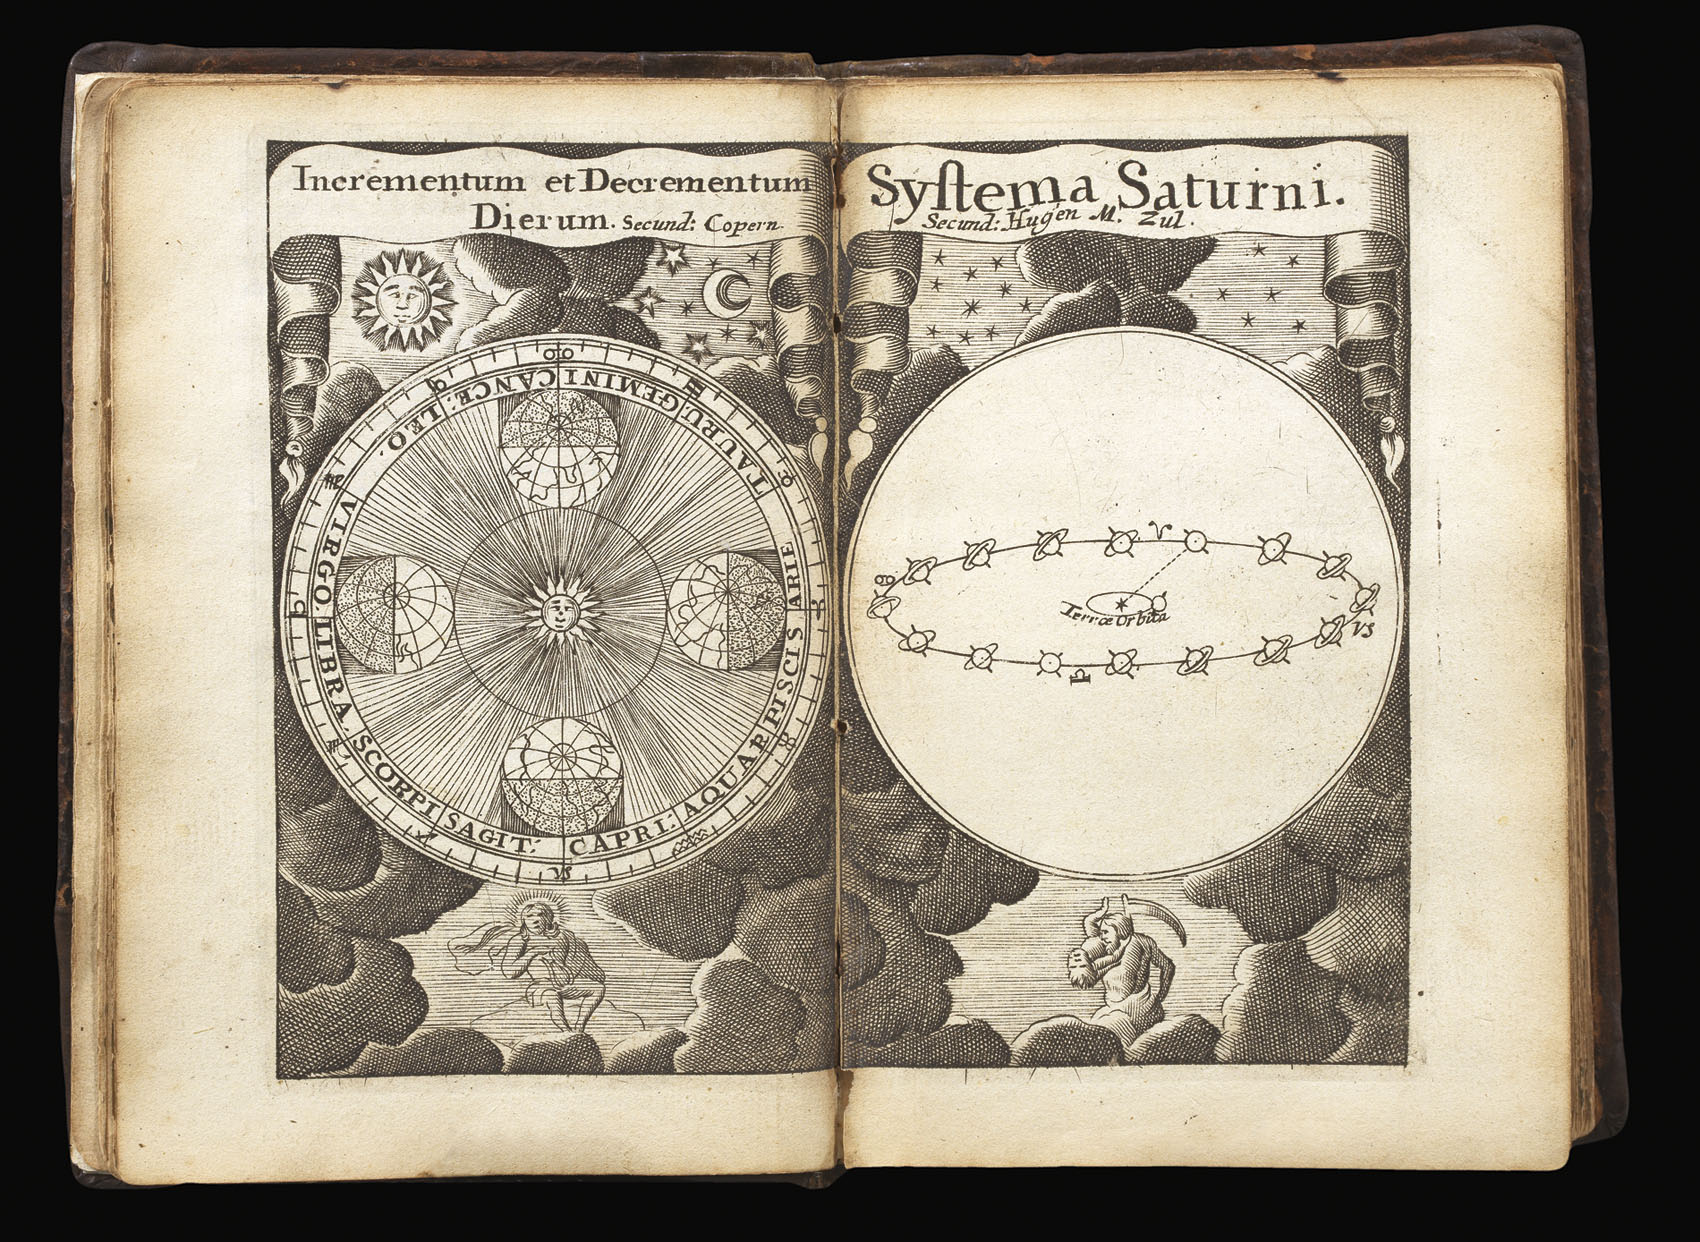 Incrementum et Decrementum
Dierum. Secund: Copern.
CANCE:
LEO.
VIRGO.
LIBRA.
SCORPI
SAGIT:
CAPRI:
AQUAR
PISCIS
ARIE
TAURU:
GEMINI
Syſtema Saturni.
Secund: Hugen M. Zul.
♈
♋
Terræ Orbita
♑
♎